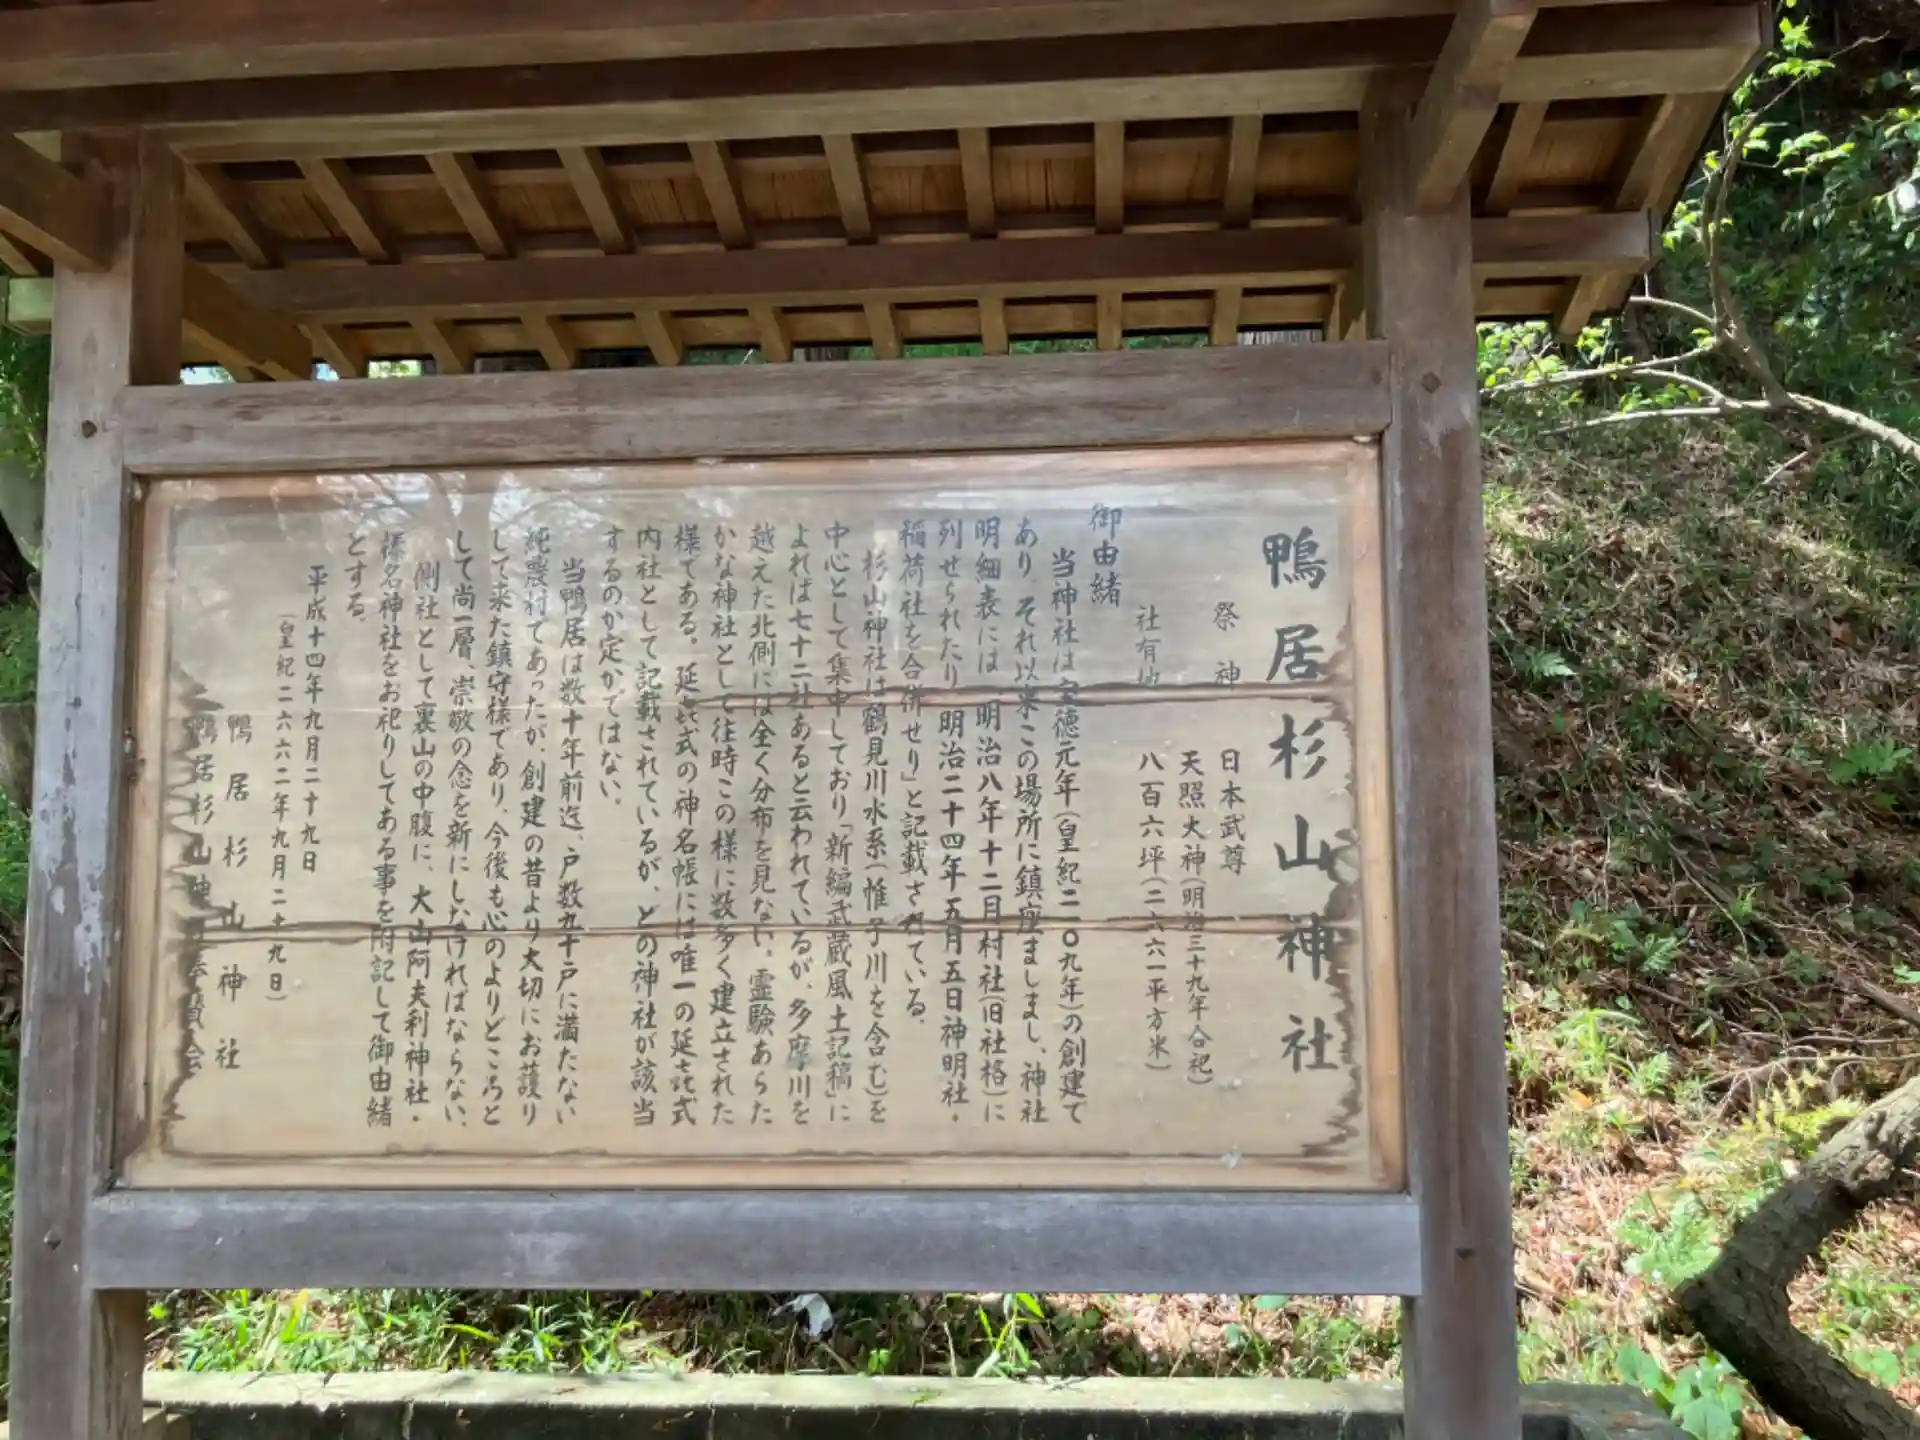 鴨居杉山神社
祭神　日本武尊
天照大神(明治三十九年合祀)
社有地　八百六坪(二六六一平方米)
御由緒
当神社は宝徳元年(皇紀二一〇九年)の創建で
あり、それ以来この場所に鎮座ましまし、神社
明細表には、「明治八年十二月村社(旧社格)に
列せられたり、明治二十四年五月五日神明社・
稲荷社を合併せり」と記載されている。
杉山神社は鶴見川水系(惟子川を含む)を
中心として集中しており「新編武蔵風土記稿」に
よれば七十二社あると云われているが、多摩川を
越えた北側には全く分布を見ない。霊験あらた
かな神社として往時この様に数多く建立された
様である。延㐂式の神名帳には唯一の延㐂式
内社として記載されているが、どの神社が該当
するのか定かではない。
当鴨居は数十年前迄、戸数九十戸に満たない
純農村であったが、創建の昔より大切にお護り
して来た鎮守様であり、今後も心のよりどころと
して尚一層、崇敬の念を新にしなければならない、
側社として裏山の中腹に、大山阿夫利神社・
榛名神社をお祀りしてある事を附記して御由緒
とする
平成十四年九月二十九日
(皇紀二六六二年九月二十九日)
鴨居杉山神社
鴨居杉山神社奉賛会